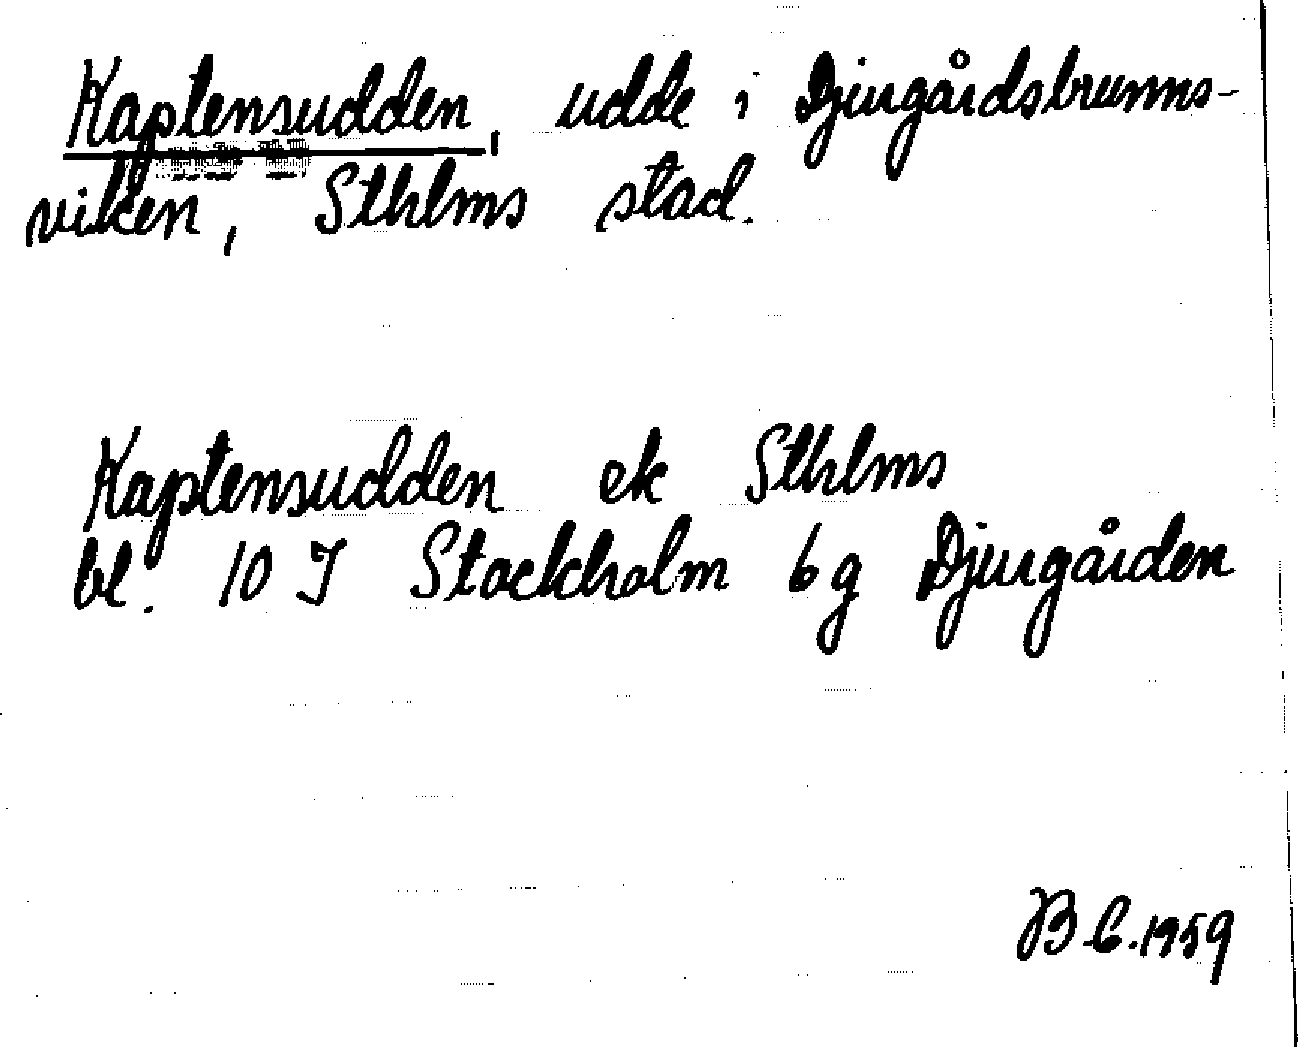 Kaptensudden, udde i Djurgårdsbrunns-
viken, Sthlms stad.
Kaptensudden ek Sthlms
bl. 10 I Stockholm 6g Djurgården
B C. 1959